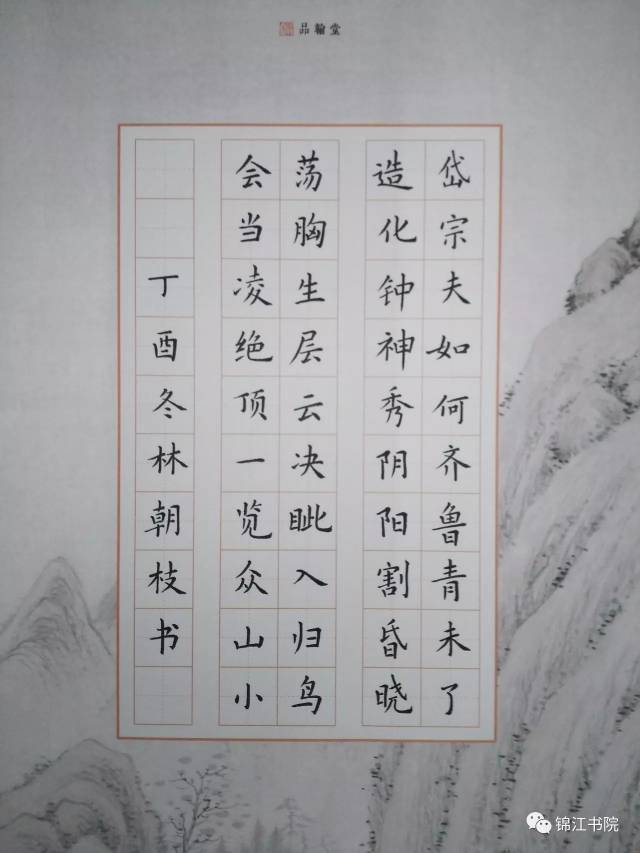 品翰堂
岱宗夫如何齐鲁青未了
造化钟神秀阴阳割昏晓
荡胸生层云决眦入归鸟
会当凌绝顶一览众山小
丁酉冬林朝枝书
锦江书院